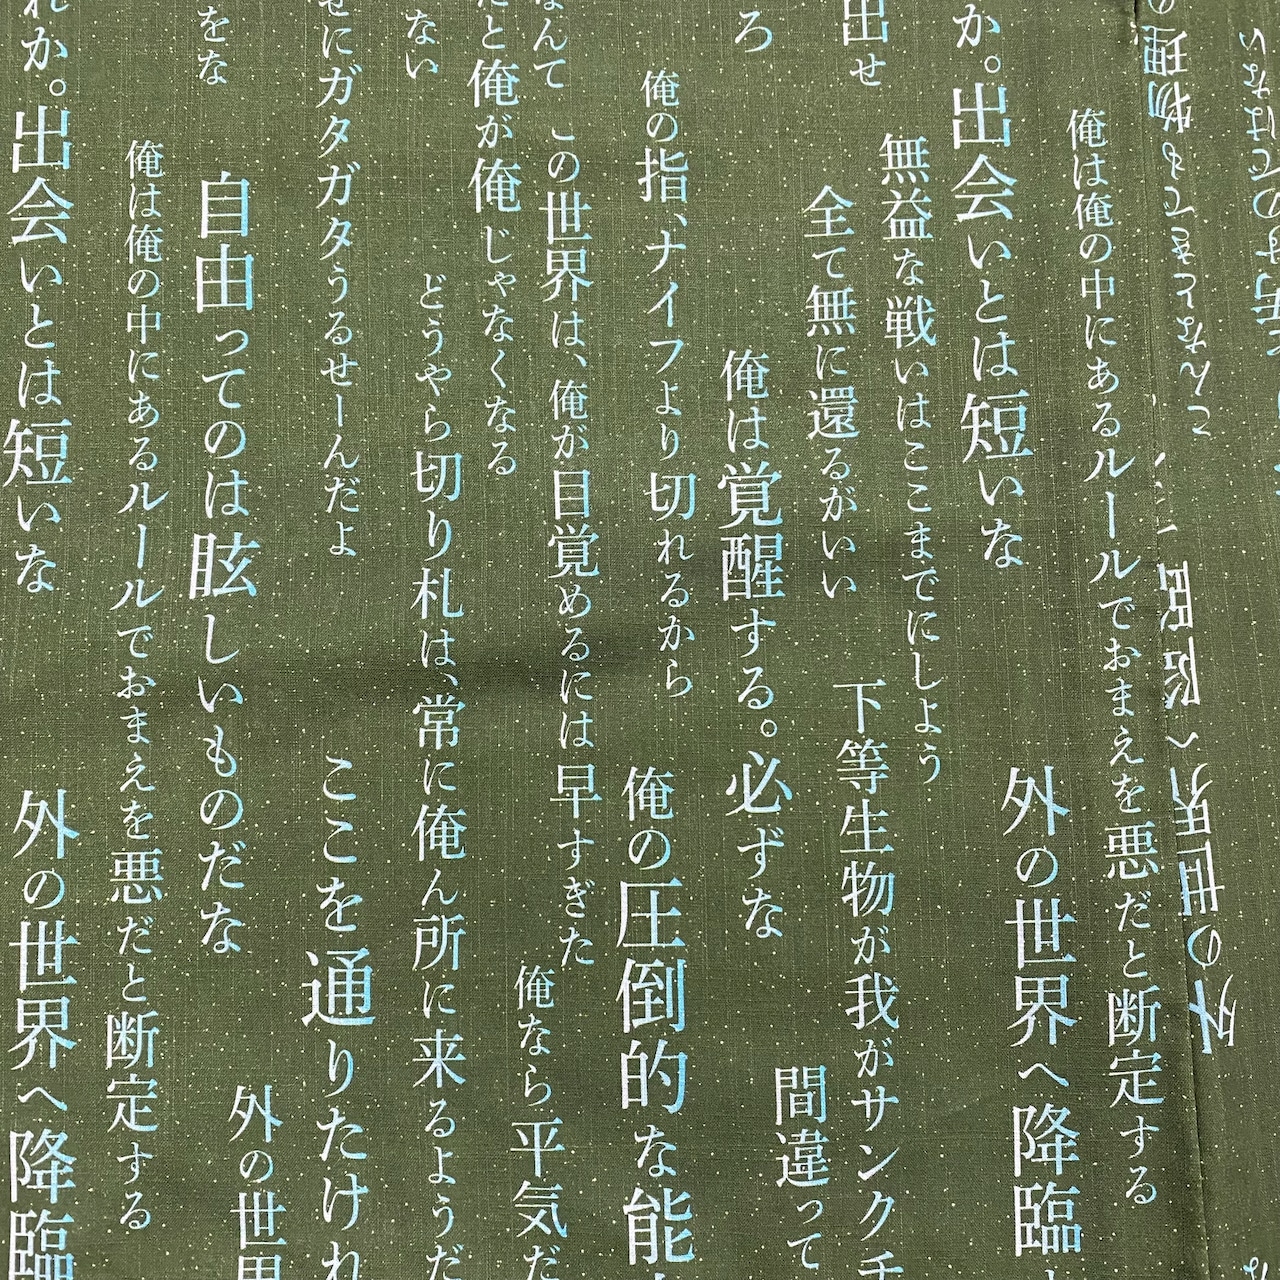 俺は俺の中にあるルールでおまえを悪だと断定する
か。出会いとは短いな
外の世界へ降臨
出せ
無益な戦いはここまでにしよう
全て無に還るがいい
下等生物が我がサンクチ
ろ
俺は覚醒する。必ずな
間違って
俺の指、ナイフより切れるから
俺の圧倒的な能
なんて
この世界は、俺が目覚めるには早すぎた
だと俺が俺じゃなくなる
俺なら平気だ
ない
どうやら切り札は、常に俺ん所に来るようだ
せにガタガタうるせーんだよ
ここを通りたけれ
をな
自由ってのは眩しいものだな
外の世界
俺は俺の中にあるルールでおまえを悪だと断定する
れか。出会いとは短いな
外の世界へ降臨